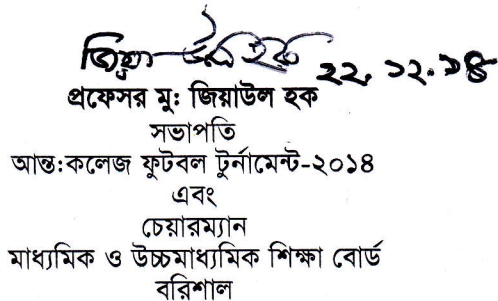 জিয়াউল হক ২২.১২.১৪
প্রফেসর মু: জিয়াউল হক
সভাপতি
আন্ত:কলেজ ফুটবল টুর্নামেন্ট-২০১৪
এবং
চেয়ারম্যান
মাধ্যমিক ও উচ্চমাধ্যমিক শিক্ষা বোর্ড
বরিশাল